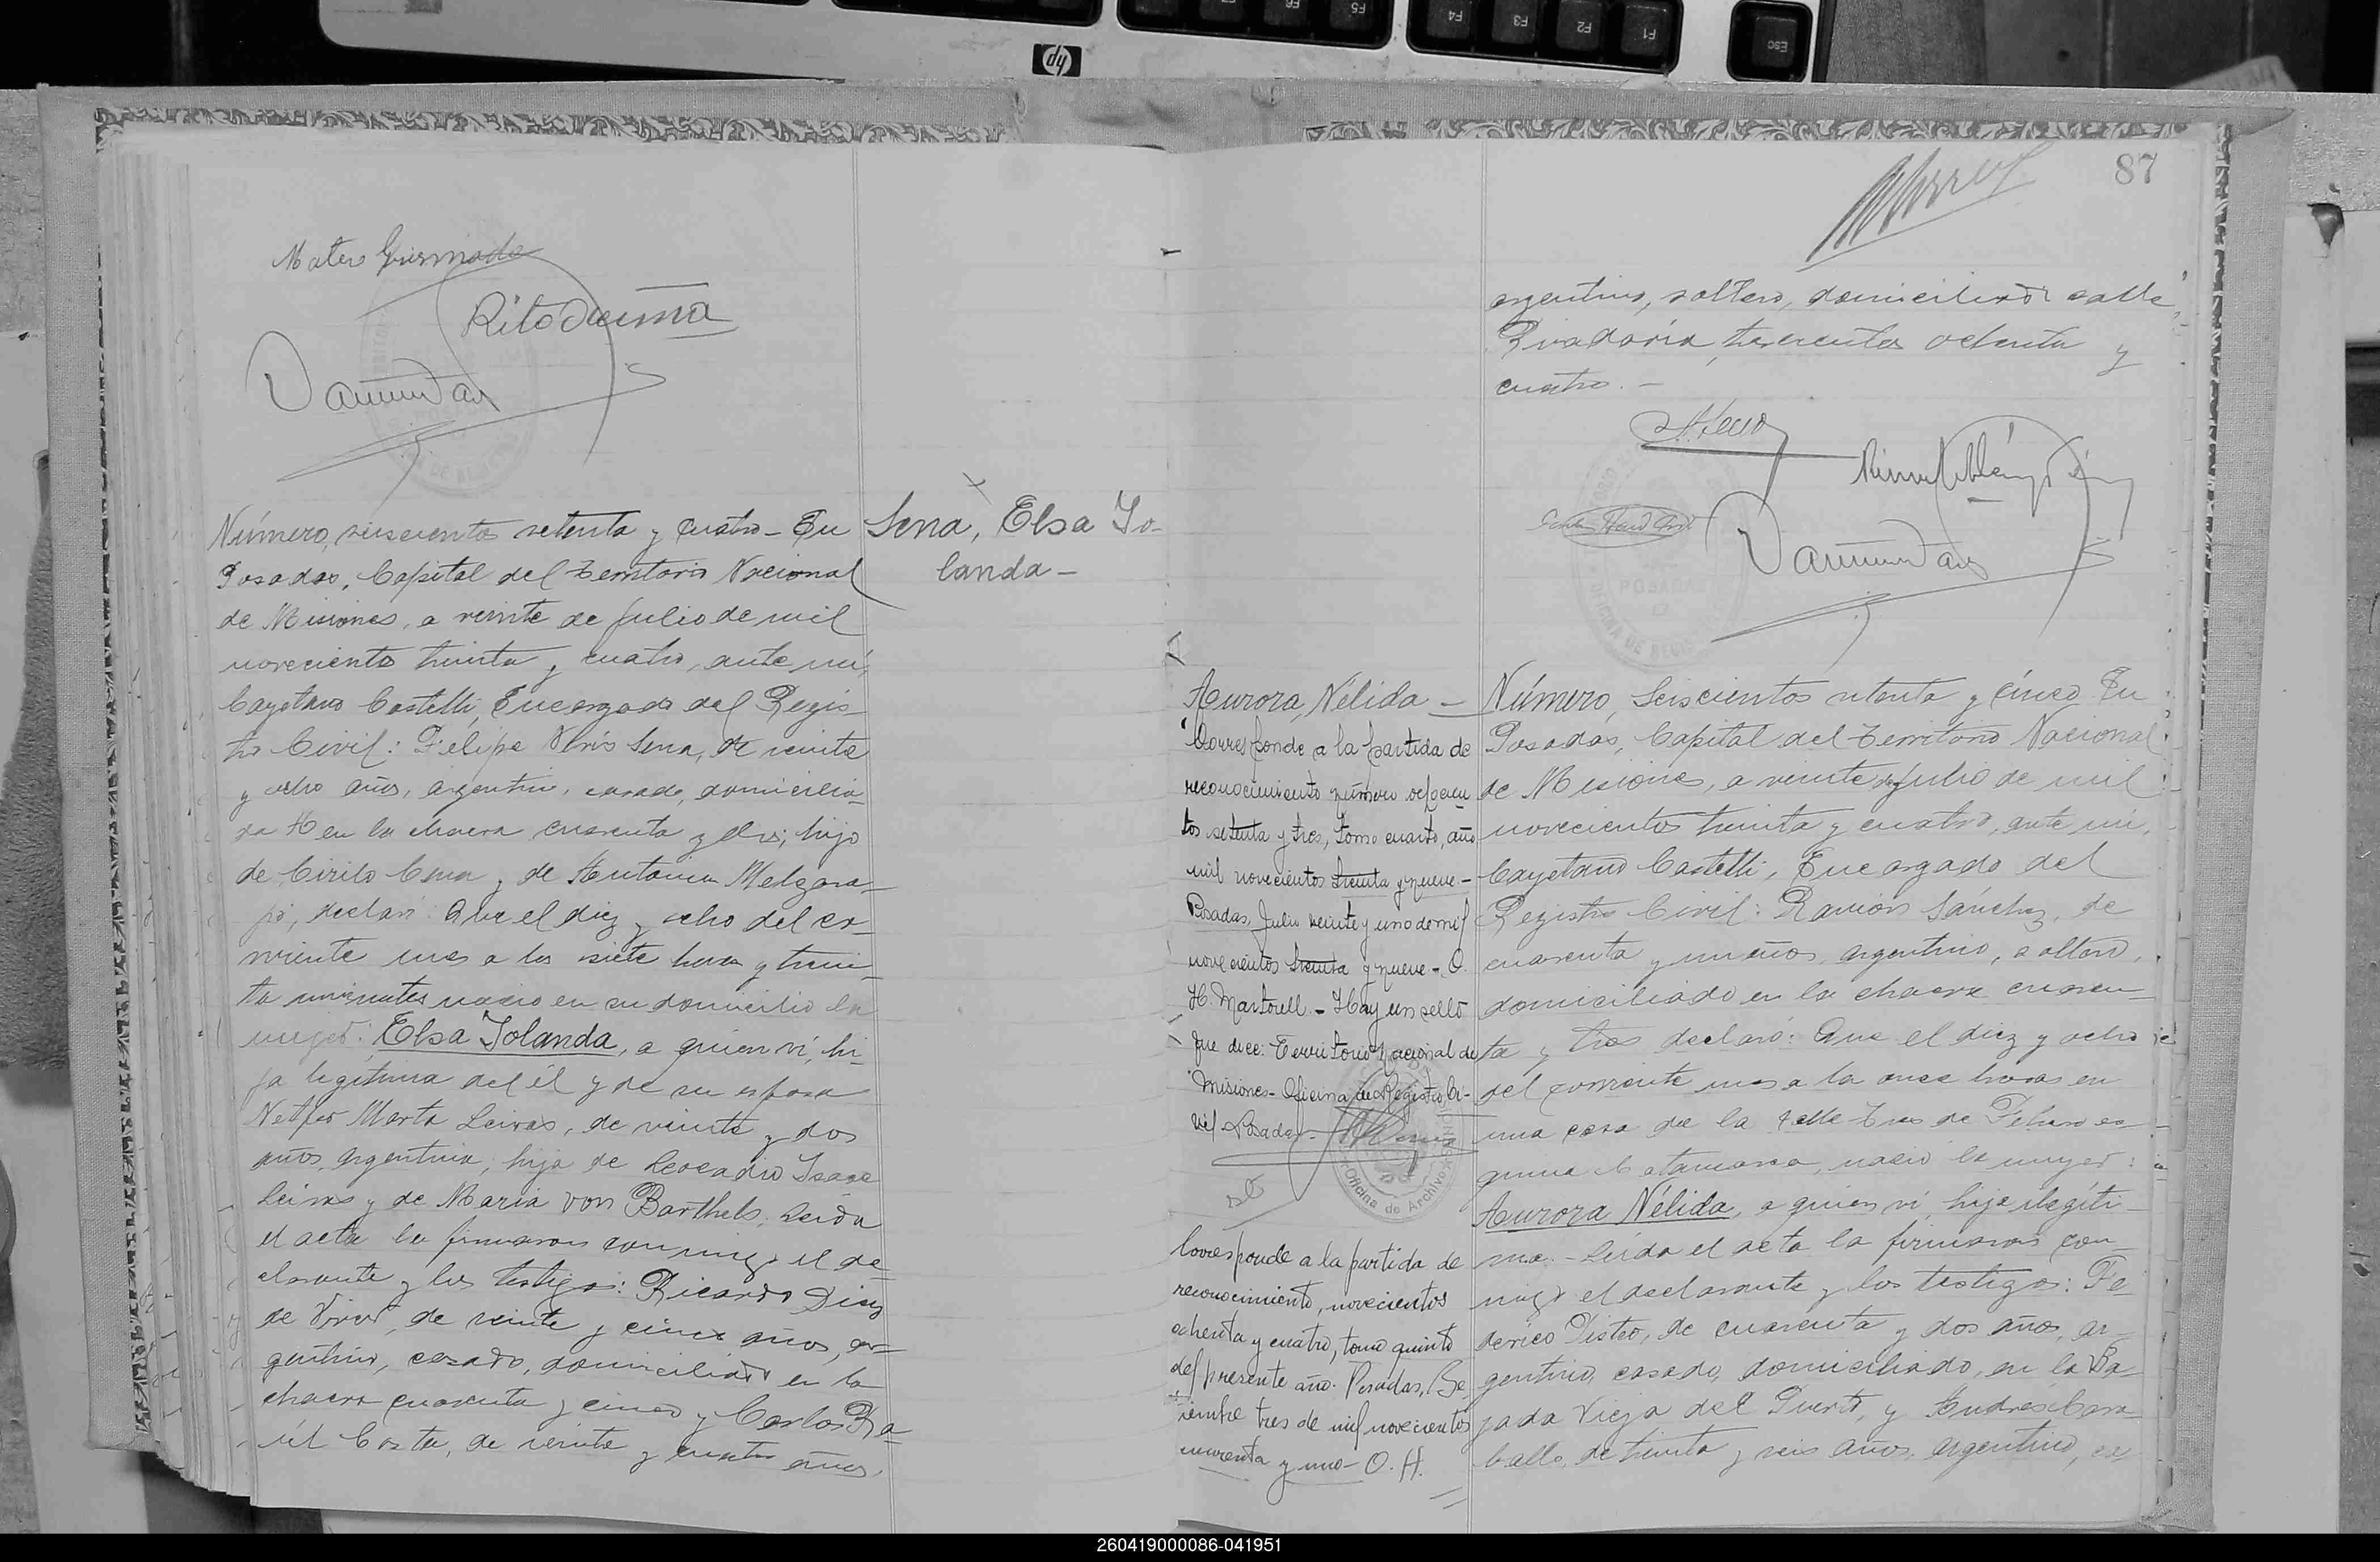 Mateo
Rito
Número, seiscientos setenta y cuatro - En
Posadas, Capital del Territorio Nacional
de Misiones, a veinte de Julio de mil
novecientos treinta y cuatro, ante mí,
Cayetano Castelli, Encargado del Regis-
tro Civil: Felipe Sena, de veinte
y ocho años, argentino, casado, domicilia-
do en la chacra cuarenta y dos; hijo
de Cirilo y de Antonia Melgara-
jo, declaró: Que el diez y ocho del co-
rriente mes a las siete horas y trein-
ta minutos nació en su domicilio la
mujer: Elsa Yolanda, a quien ví, hi-
ja legítima del él y de su esposa
Marta Leivas, de veinte y dos
años, argentina, hija de Leocadio Isaac
Leivas y de Maria von Barthels. Leída
el acta la firmaron conmigo el de-
clarante y los testigos: Ricardo Diez
de Vivar, de veinte y cinco años, ar-
gentino, casado, domiciliado en la
chacra cuarenta y cinco y Carlos Ra-
úl Costa, de veinte y cuatro años,
Sena, Elsa Yo-
landa -
87
argentino, soltero, domiciliado calle
Rivadavia, trescientos ochenta y
cuatro. -
POSADAS
OFICINA DE REGIS
Aurora, Nélida -
Corresponde a la partida de
reconocimiento número ochocien
tos setenta y tres, tomo cuarto, año
mil novecientos treinta y nueve -
Posadas, Julio veinte y uno de mil
novecientos treinta y nueve - O.
H. Martorell - Hay un sello
que dice: Territorio Nacional de
Misiones - Oficina de Registro Ci-
vil - Posadas -
Oficina de Archivo
Corresponde a la partida de
reconocimiento, novecientos
ochenta y cuatro, tomo quinto
del presente año. Posadas, Se-
tiembre tres de mil novecientos
cuarenta y uno - O. H.
Número, Seiscientos setenta y cinco En
Posadas, Capital del Territorio Nacional
de Misiones, a veinte de Julio de mil
novecientos treinta y cuatro, ante mí,
Cayetano Castelli, Encargado del
Registro Civil: Ramón Sánchez, de
cuarenta y un años, argentino, soltero,
domiciliado en la chacra cuaren-
ta y tres declaró: Que el diez y ocho
del corriente mes a la once horas en
una casa de la calle Tres de Febrero es-
quina Catamarca, nació la mujer:
Aurora Nélida, a quien ví, hija ilegíti-
ma. - Leída el acta la firmaron con
migo el declarante y los testigos: Fe
derico de cuarenta y dos años, ar-
gentino, casado, domiciliado, en la Ba-
jada Vieja del Puerto, y Andres Cara
ballo, de treinta y seis años, argentino, ca
260419000086-041951